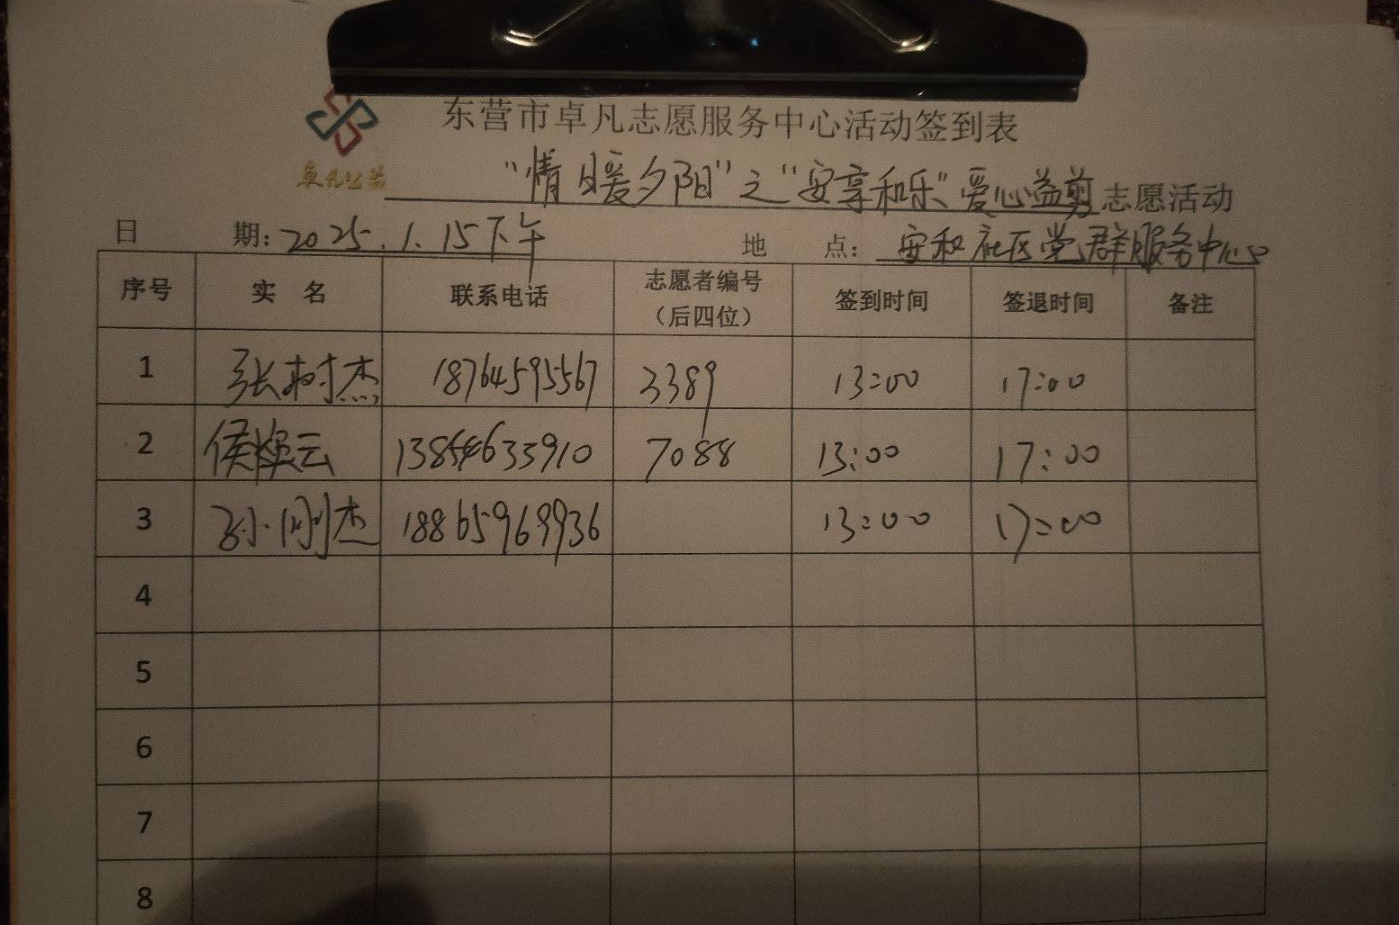 东营市卓凡志愿服务中心活动签到表
卓凡公益
“情暖夕阳”之“安享和乐”爱心益剪志愿活动
日 期: 2025.1.15下午 地 点: 安和社区党群服务中心
序号 实 名 联系电话 志愿者编号(后四位) 签到时间 签退时间 备注
1 张树杰 18764595567 3389 13:00 17:00
2 侯 云 13854633910 7088 13:00 17:00
3 孙刚杰 18865969936 13:00 17:00
4
5
6
7
8